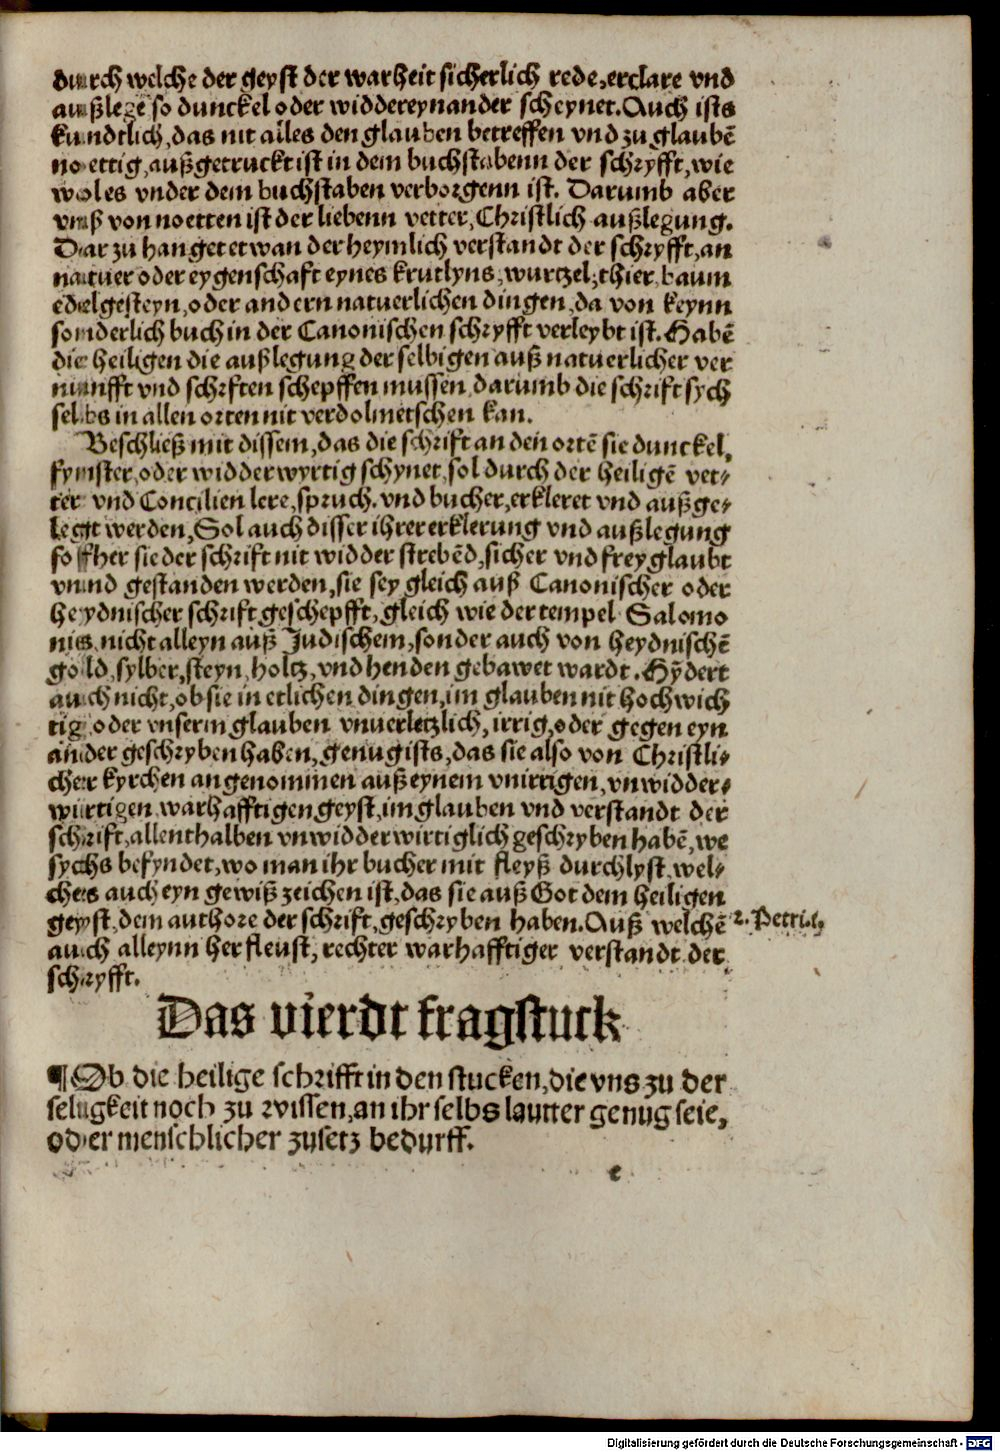 durch welche der geyst der warheit sicherlich rede, erclare vnd
außlege so dunckel oder widdereynander scheynet. Auch ists
kundtlich, das nit alles den glauben betreffen vnd zu glaubē
noettig, außgetruckt ist in dem buchstabenn der schryfft, wie
wol es vnder dem buchstaben verborgenn ist. Darumb aber
vmß von noetten ist der liebenn vetter, Christlich außlegung.
Dar zu hanget etwan der heymlich verstandt der schryfft, an
natuer oder eygenschaft eynes krutlyns, wurtzel, thier, baum
edelgesteyn, oder andern natuerlichen dingen, da von keynn
sonderlich buch in der Canonischen schryfft verleybt ist. Habē
die heiligen die außlegung der selbigen auß natuerlicher ver
nunfft vnd schrften schepffen mussen, darumb die schrift sych
selbs in allen orten nit verdolmetschen kan.
Beschließ mit dissem, das die schrift an den ortē sie dunckel,
fynster, oder widderwyrtig schynet, sol durch der heiligē vet-
ter vnd Concilien lere, spruch. vnd bucher, erkleret vnd außge-
legt werden, Sol auch disser ihrer erklerung vnd außlegung
so fher sie der schrift nit widder strebēd, sicher vnd frey glaubt
vnnd gestanden werden, sie sey gleich auß Canonischer oder
heydnischer schrift geschepfft, gleich wie der tempel Salomo
nis nicht alleyn auß Judischem, sonder auch von heydnischē
gold, sylber, steyn, holtz, vnd henden gebawet wardt. Hȳdert
auch nicht, ob sie in etlichen dingen, im glauben nit hochwich
tig oder vnserm glauben vnuerletzlich, irrig, oder gegen eyn
ander geschryben haben, genug ists, das sie also von Christli-
cher kyrchen angenommen auß eynem vnirrigen, vnwidder-
wurtigen warhafftigen geyst, im glauben vnd verstandt der
schrift, allenthalben vnwidderwirtiglich geschryben habē, we
sychs befyndet, wo man ihr bucher mit fleyß durchlyst, wel-
ches auch eyn gewiß zeichen ist, das sie auß Got dem heiligen
geyst, dem authore der schrift, geschryben haben. Auß welchē 2. Petri. i.
auch alleynn her fleust, rechter warhafftiger verstandt der
schryfft.
Das vierdt fragstuck
¶ Ob die heilige schrifft in den stucken, die vns zu der
seligkeit noch zu wissen, an ihr selbs lautter genug seie,
oder menschlicher zusetz bedurff.
e
Digitalisierung gefördert durch die Deutsche Forschungsgemeinschaft - DFG